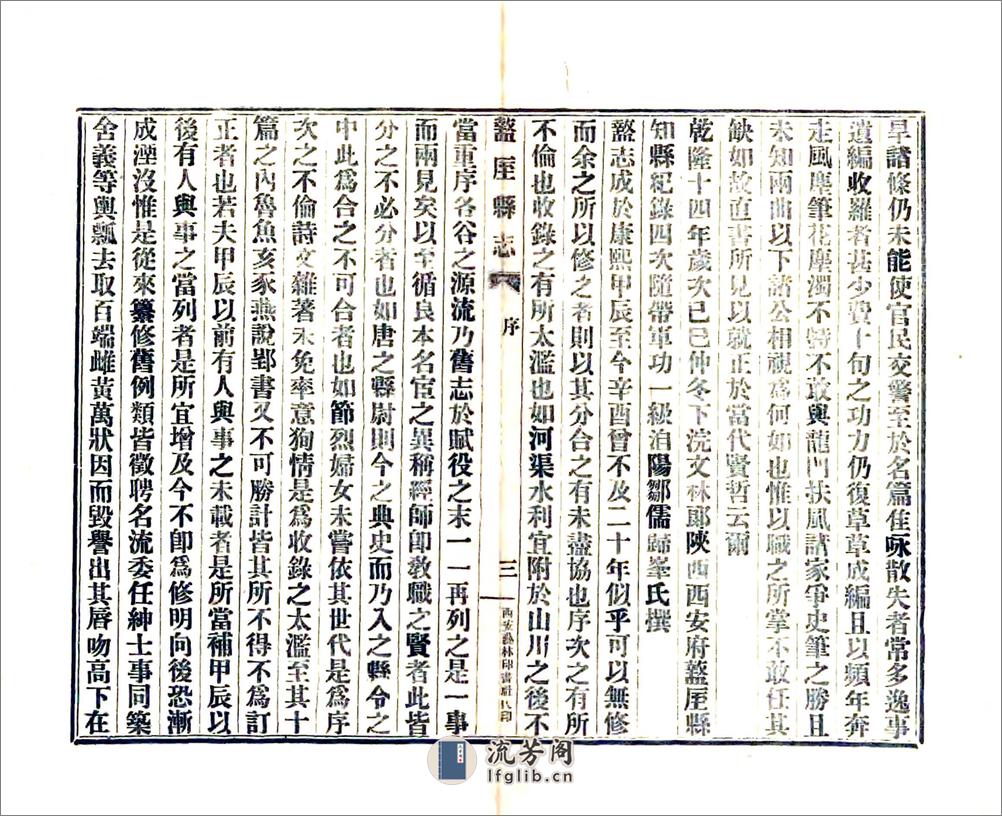 早諸條仍未能使官民交警至於名篇佳咏散失者常多逸事
遺編收羅者甚少費十旬之功力仍復草草成編且以頻年奔
走風塵筆花塵濁不特不敢與龍門扶風諸家爭史筆之勝且
未知兩曲以下諸公相視爲何如也惟以職之所掌不敢任其
缺如故直書所見以就正於當代賢哲云爾
乾隆十四年歲次己巳仲冬下浣文林郞陝西西安府盩厔縣
知縣紀錄四次隨帶軍功一級泊陽鄒儒歸峯氏撰
盩志成於康熙甲辰至今辛酉曾不及二十年似乎可以無修
而余之所以修之者則以其分合之有未盡協也序次之有所
不倫也收錄之有所太濫也如河渠水利宜附於山川之後不
盩厔縣志
序
三
西安藝林印書社代印
當重序各谷之源流乃舊志於賦役之末一一再列之是一事
而兩見矣以至循良本名宦之異稱經師卽敎職之賢者此皆
分之不必分者也如唐之縣尉則今之典史而乃入之縣令之
中此爲合之不可合者也如節烈婦女未嘗依其世代是爲序
次之不倫詩文雜著未免率意狥情是爲收錄之太濫至其十
篇之內魯魚亥豕燕說郢書又不可勝計皆其所不得不爲訂
正者也若夫甲辰以前有人與事之未載者是所當補甲辰以
後有人與事之當列者是所宜增及今不卽爲修明向後恐漸
成湮沒惟是從來纂修舊例類皆徵聘名流委任紳士事同築
舍義等輿瓢去取百端雌黃萬狀因而毀譽出其唇吻高下在
流芳阁
lfglib.cn